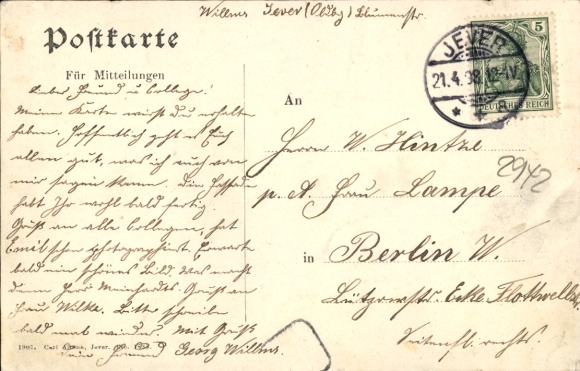 Willms Jever (Oldbg) Blumenstr.
Postkarte
Für Mitteilungen
Lieber Freund u College!
Meine Karte wirst Du erhalten
haben. Hoffentlich geht es Euch
allen gut, was ich auch von
mir sagen kann. Die Fassade
habt Ihr wohl bald fertig.
Gruß an alle Collegen, hat
Emil schon photographiert. Erwarte
bald ein schönes Bild. Was macht
denn Herr Meinhardt. Gruß an
Frau Wilke. Bitte schreibe
bald mal wieder. Mit Gruß
Dein Freund Georg Willms.
1907. Carl Jever.
JEVER
21.4.08. 12-1V.
5
DEUTSCHES REICH
An
Herrn W. Hintze
p. A. Frau Lampe
2942
in Berlin W.
Lützowstr. Ecke Flottwellstr.
Seitenfl. rechts.